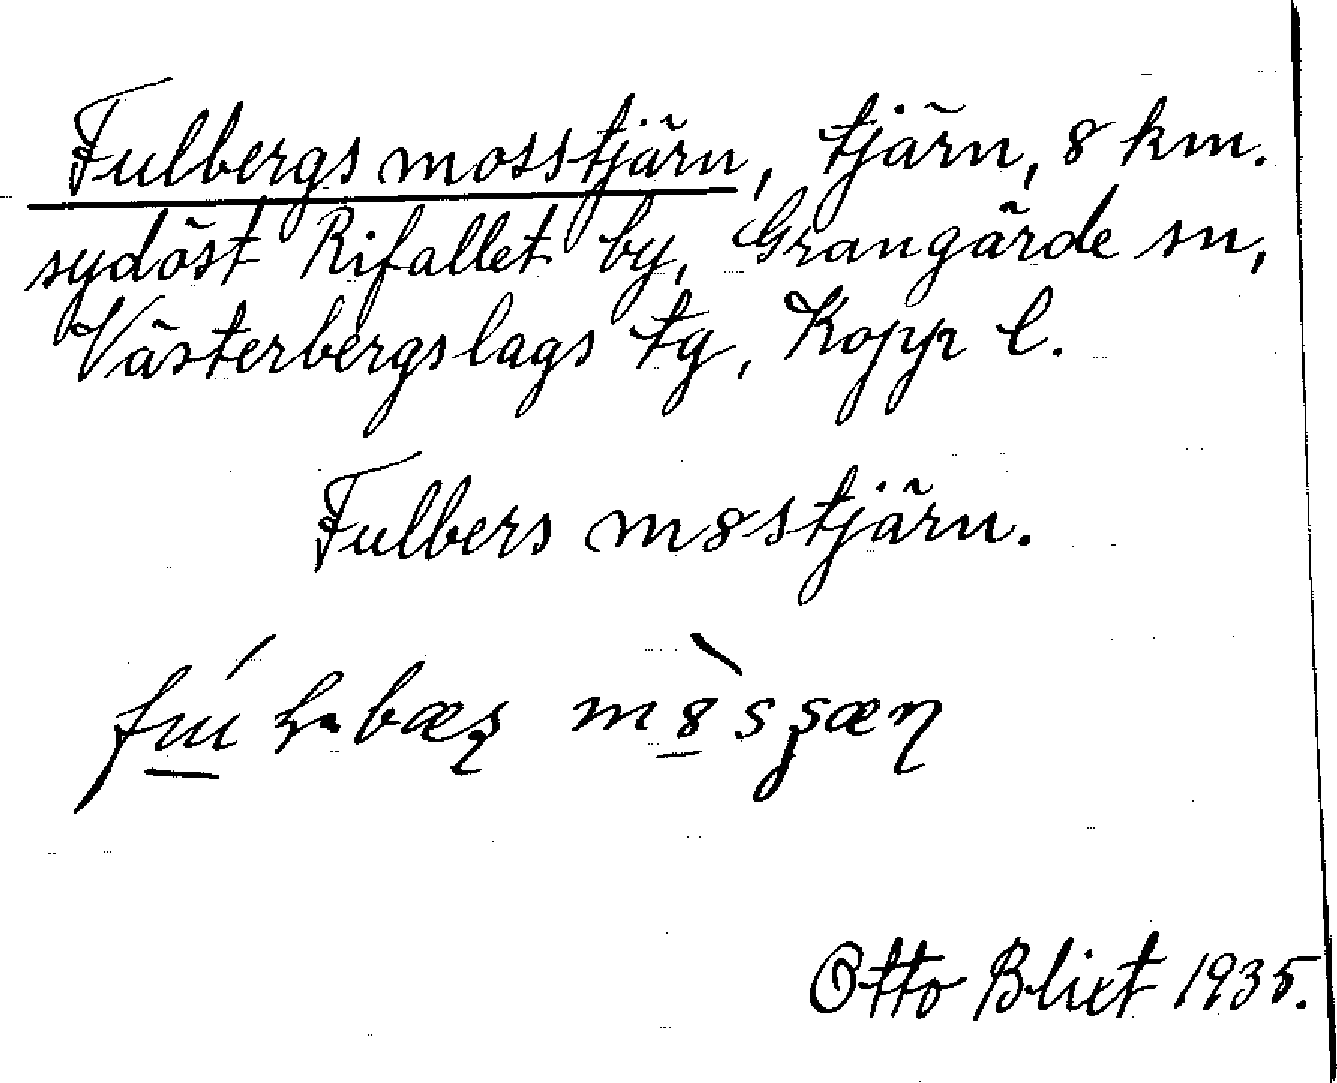 Fulbergs mosstjärn, tjärn, 8 km.
sydöst Rifallet by, Grangärde sn,
Västerbergslags tg, Kopp l.
Fulbers m8stjärn.
Otto Blixt 1935.